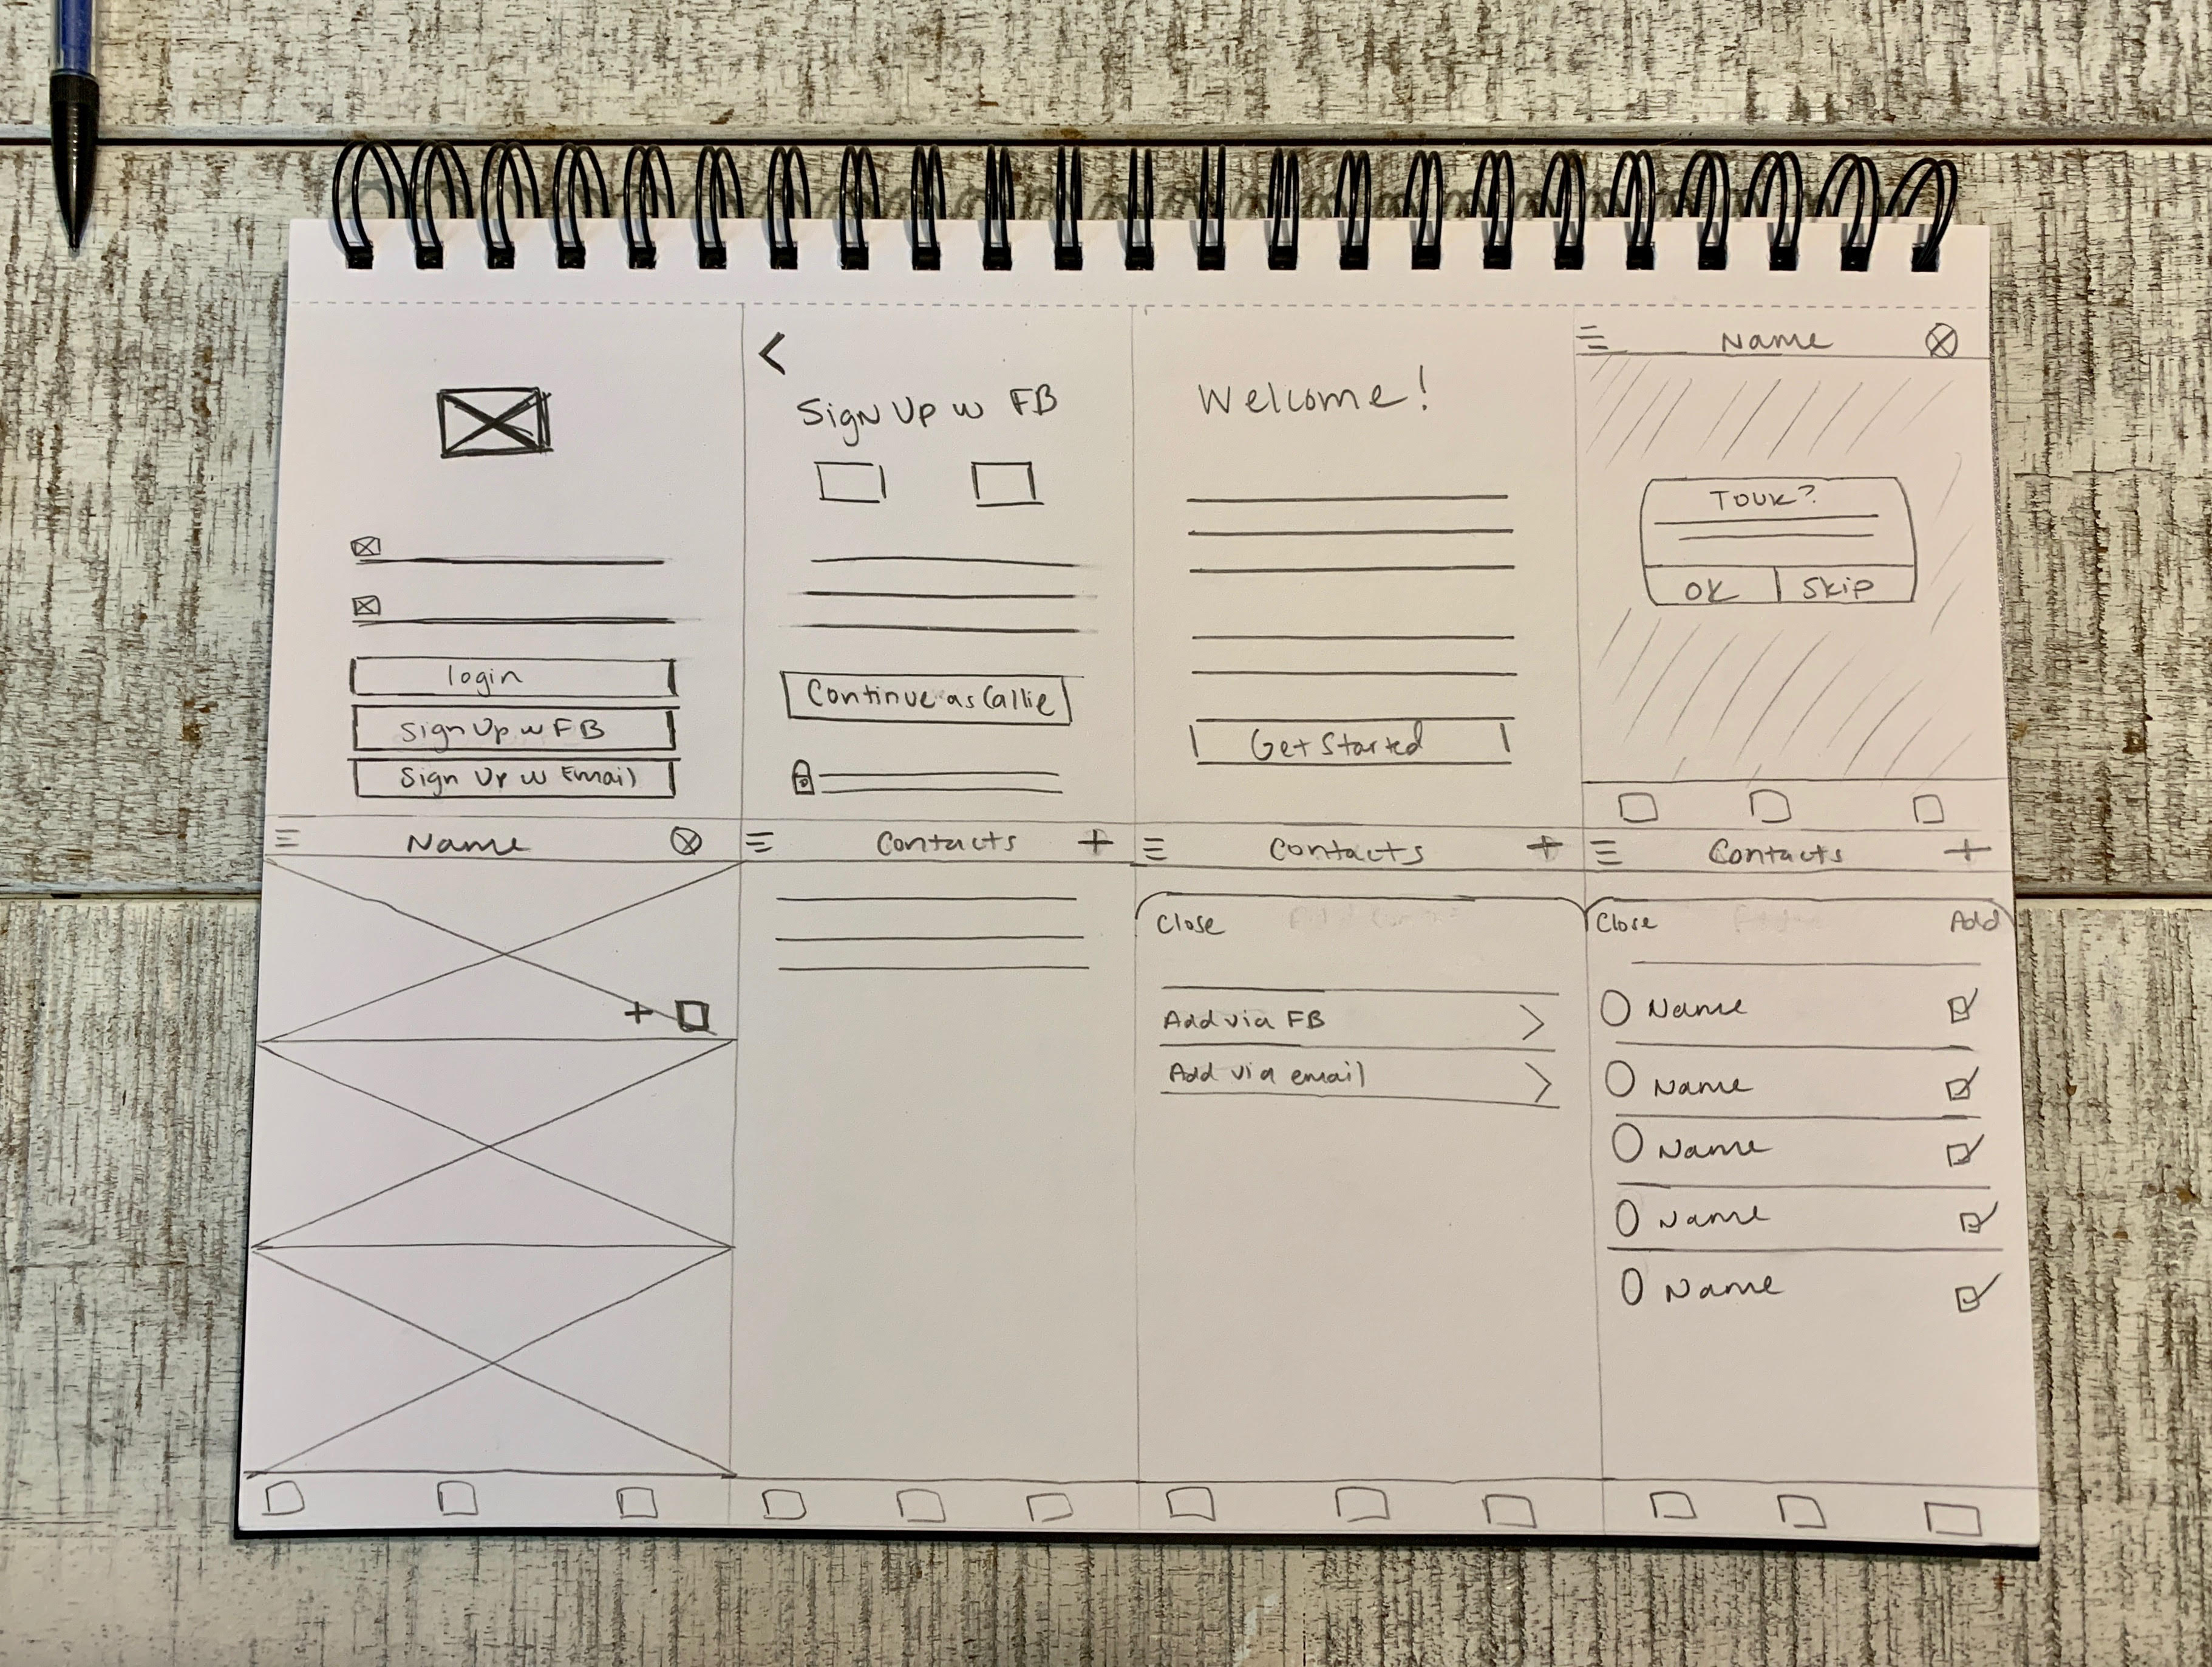 login
Sign Up w FB
Sign Up w Email
Sign Up w FB
Continue as Callie
Welcome!
Get Started
Name
Tour?
OK
Skip
Name
Contacts
Contacts
Close
Add via FB
Add via email
Contacts
Close
Add
Name
Name
Name
Name
Name